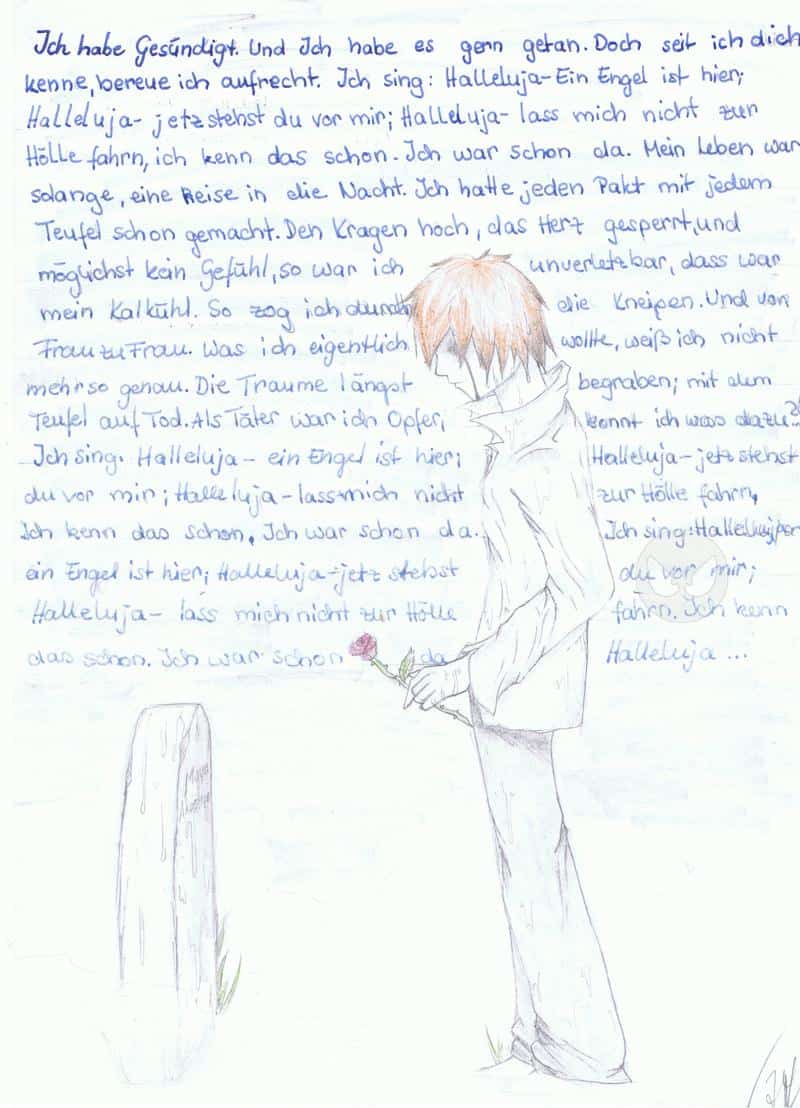 Ich habe Gesündigt. Und Ich habe es gern getan. Doch seit ich dich
kenne, bereue ich aufrecht. Ich sing: Halleluja- Ein Engel ist hier;
Halleluja- jetz stehst du vor mir; Halleluja- lass mich nicht zur
Hölle fahrn, ich kenn das schon. Ich war schon da. Mein Leben war
solange, eine Reise in die Nacht. Ich hatte jeden Pakt mit jedem
Teufel schon gemacht. Den Kragen hoch, das Herz gesperrt, und
möglichst kein Gefühl, so war ich unverletzbar, dass war
mein Kalkühl. So zog ich durch die Kneipen. Und von
Frau zu Frau. Was ich eigentlich wollte, weiß ich nicht
mehr so genau. Die Träume längst begraben; mit dem
Teufel auf Tod. Als Täter war ich Opfer, konnt ich was dazu..?
Ich sing. Halleluja - ein Engel ist hier; Halleluja - jetz stehst
du vor mir; Halleluja - lass mich nicht zur Hölle fahrn,
Ich kenn das schon, Ich war schon da. Ich sing: Halleluja
ein Engel ist hier; Halleluja - jetz stehst du vor mir;
Halleluja - lass mich nicht zur Hölle fahrn. Ich kenn
das schon. Ich war schon da Halleluja ...